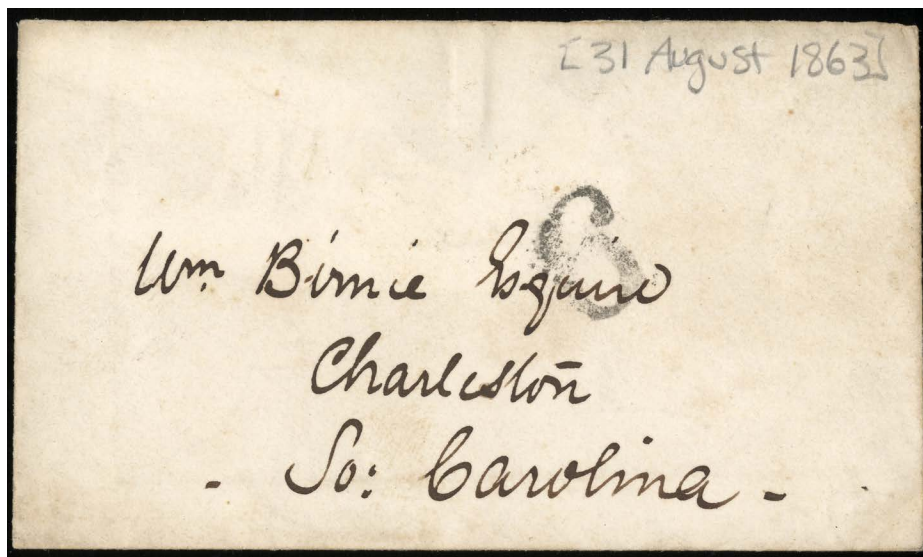 [31 August 1863]
6
Wm Birnie Esquire
Charleston
So: Carolina -